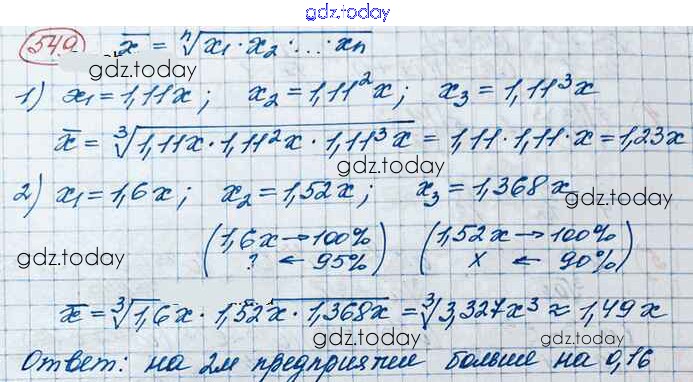 gdz.today
549 x̄ = ⁿ√(x₁ · x₂ · ... · xₙ)
gdz.today
1) x₁ = 1,11x ; x₂ = 1,11²x ; x₃ = 1,11³x
x̄ = ³√(1,11x · 1,11²x · 1,11³x) = 1,11 · 1,11 · x = 1,23x
gdz.today
2) x₁ = 1,6x ; x₂ = 1,52x ; x₃ = 1,368x
gdz.today
(1,6x → 100% (1,52x → 100%
? ← 95%) x ← 90%)
gdz.today
gdz.today
x̄ = ³√(1,6x · 1,52x · 1,368x) = ³√(3,327x³) ≈ 1,49x
gdz.today
gdz.today
Ответ: на 2м предприятии больше на 0,16